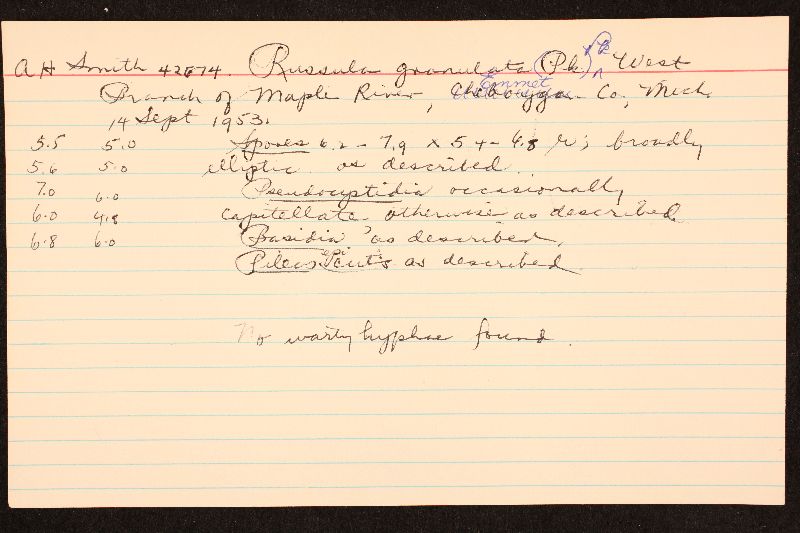 A H Smith 42674. Russula granulata (Pk) Pk West
Branch of Maple River, Cheboygan Emmet Co., Mich.
14 Sept 1953.
5.5 5.0 Spores 6.2 - 7.9 x 5.4 - 6.8 µ; broadly
5.6 5.0 elliptic as described.
7.0 6.0 Pseudocystidia occasionally
6.0 4.8 capitellate otherwise as described
6.8 6.0 Basidia as described,
Pileus epicutis as described
No warty hyphae found.